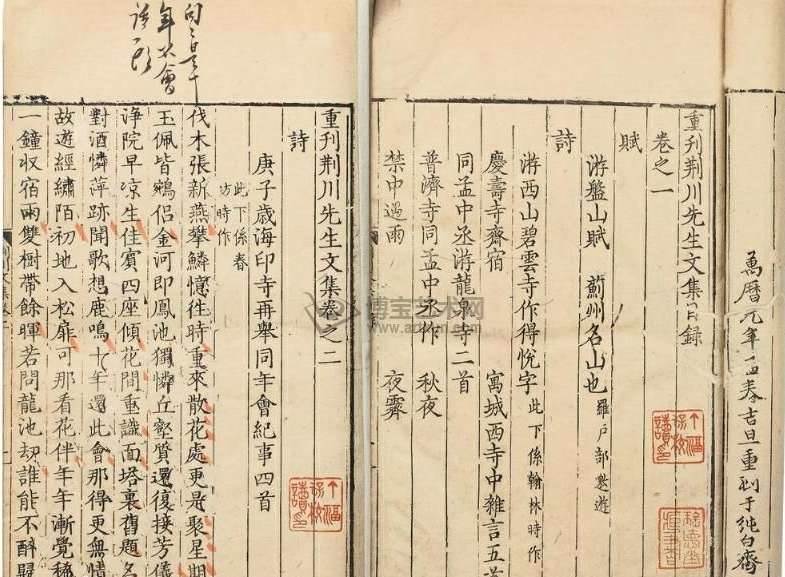 萬曆元年孟春吉旦重刻于純白齋
重刊荆川先生文集目録
卷之一
賦
游盤山賦 薊州名山也 羅戶部邀遊
詩
游西山碧雲寺作得悅字 此下係翰林時作
慶壽寺齋宿 寓城西寺中雜言五首
同孟中丞游龍泉寺二首
普濟寺同孟中丞作 秋夜
禁中遇雨 夜霽
重刊荆川先生文集卷之二
詩
庚子歲海印寺再舉同年會紀事四首
此下係春
坊時作
伐木張新燕攀鱗憶往時重來散花處更是聚星期
玉佩皆鵷侶金河即鳳池獨憐丘壑質還復接芳儀
淨院早凉生佳賓四座傾花間重識面塔裏舊題名
對酒憐萍跡聞歌想鹿鳴十年還此會那得更無情
故遊經繡陌初地入松扉可那看花伴年年漸覺稀
一鐘収宿雨雙樹帶餘暉若問龍池劫誰能不醉歸
年大會
博宝艺术网